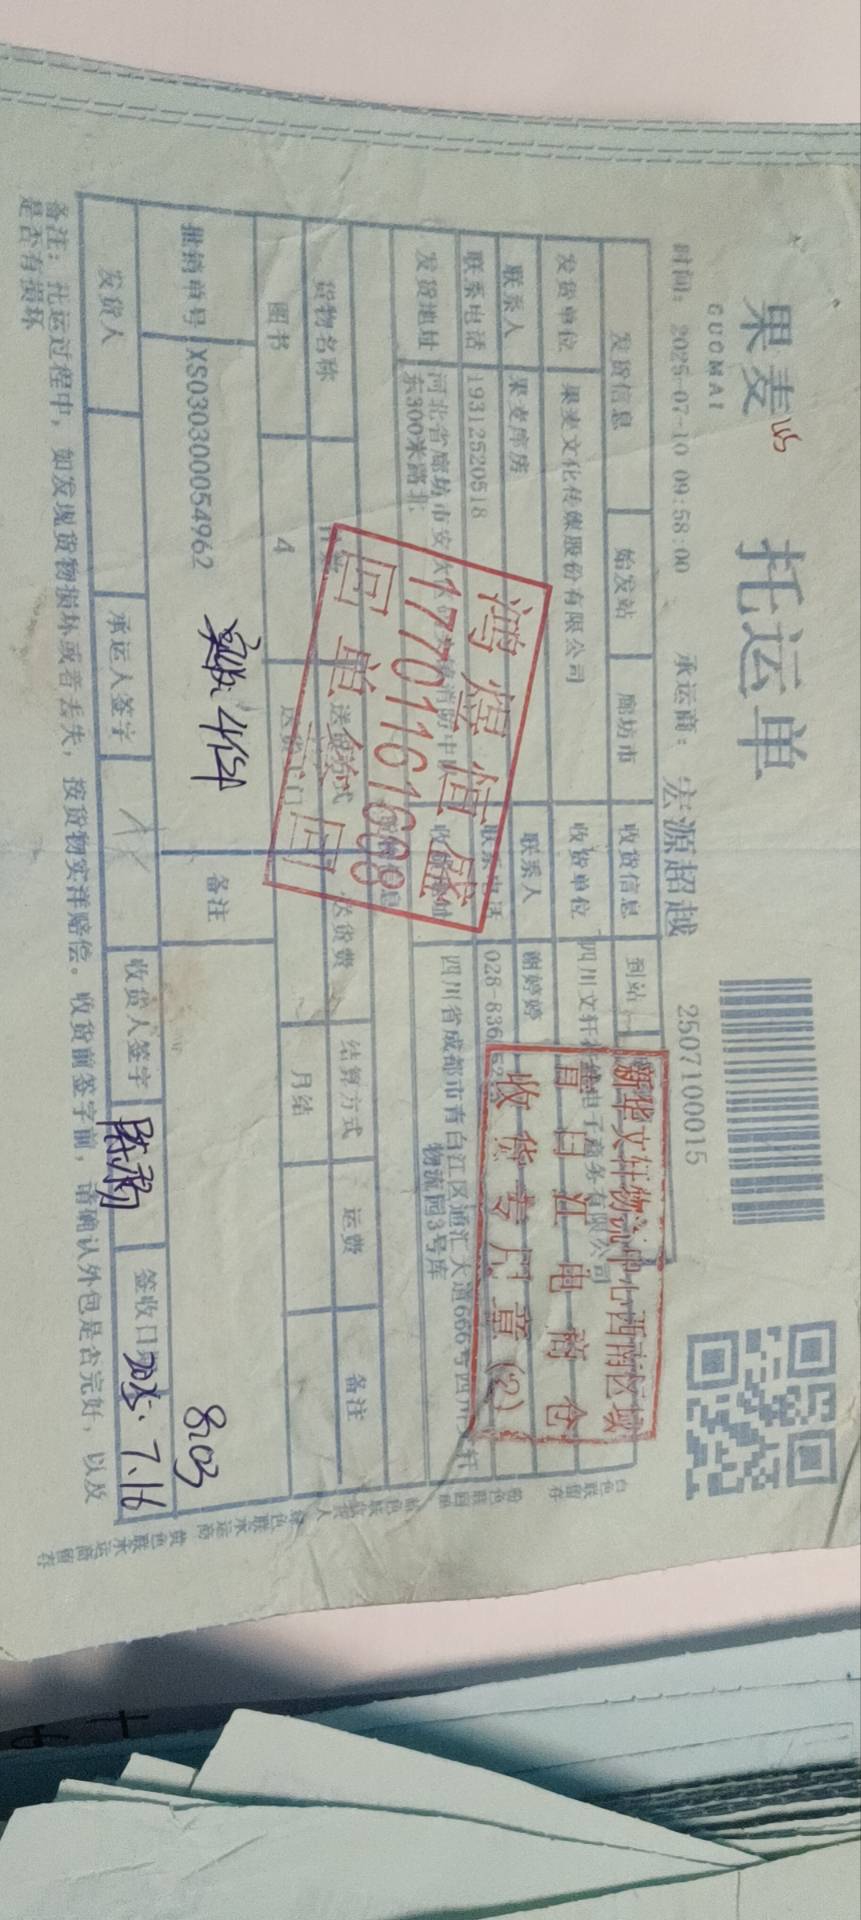 果麦
GUOMAI
托运单
时间: 2025-07-10 09:58:00 承运商: 宏源超越 2507100015
发货信息 始发站 廊坊市 收货信息 到站
发货单位 果麦文化传媒股份有限公司 收货单位 四川文轩在线电子商务有限公司
联系人 果麦库房 联系人 谢婷婷
联系电话 19312520518 联系电话 028-836
发货地址 河北省廊坊市安次区
东300米路北 四川省成都市青白江区通汇大道666号四川文轩
物流园3号库
货物名称 件数 送货方式 送货费 结算方式 运费 备注
图书 4 送货上门 月结
批销单号 XS030300054962 备注
实收: 4件 8.03
发货人 承运人签字 收货人签字 签收日期 2025.7.16
备注: 托运过程中, 如发现货物损坏或者丢失, 按货物实洋赔偿。收货前签字前, 请确认外包是否完好, 以及
是否有损坏
新华文轩物流中心西南区域
青白江电商仓
收货专用章(2)
17701161688
回单
白色联留存